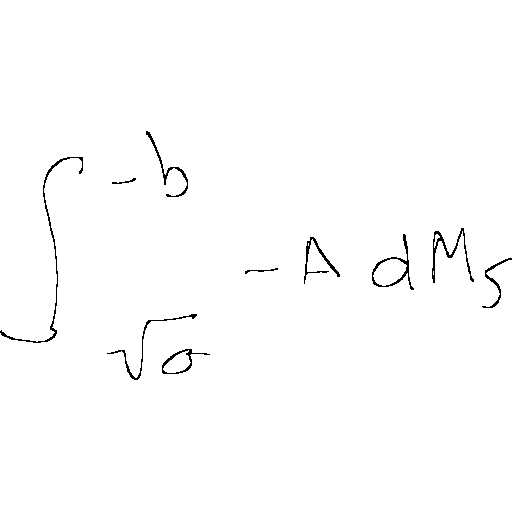 \int_{\sqrt{\sigma}}^{-b} -A dM_5